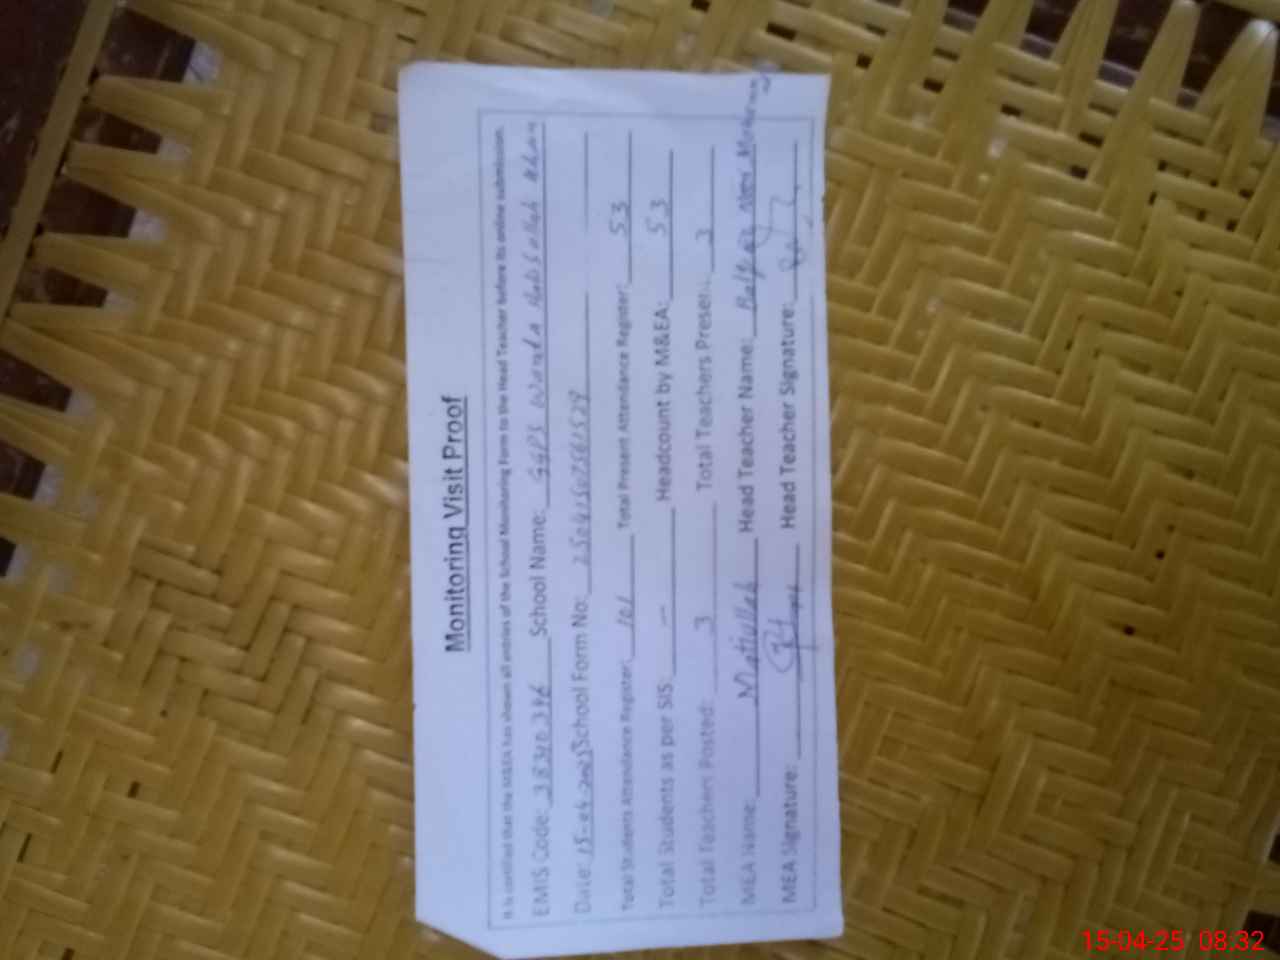 Monitoring Visit Proof
It is certified that the M&EA has shown all entries of the School Monitoring Form to the Head Teacher before its online submission.
EMIS Code: School Name: GGPS Wanda
Date: 15-04-2025 School Form No: 25041507561529
Total Students Attendance Register: 101 Total Present Attendance Register: 53
Total Students as per SIS: — Headcount by M&EA: 53
Total Teachers Posted: 3 Total Teachers Present: 3
MEA Name: Matiullah Head Teacher Name:
MEA Signature: Head Teacher Signature:
15-04-25 08:32